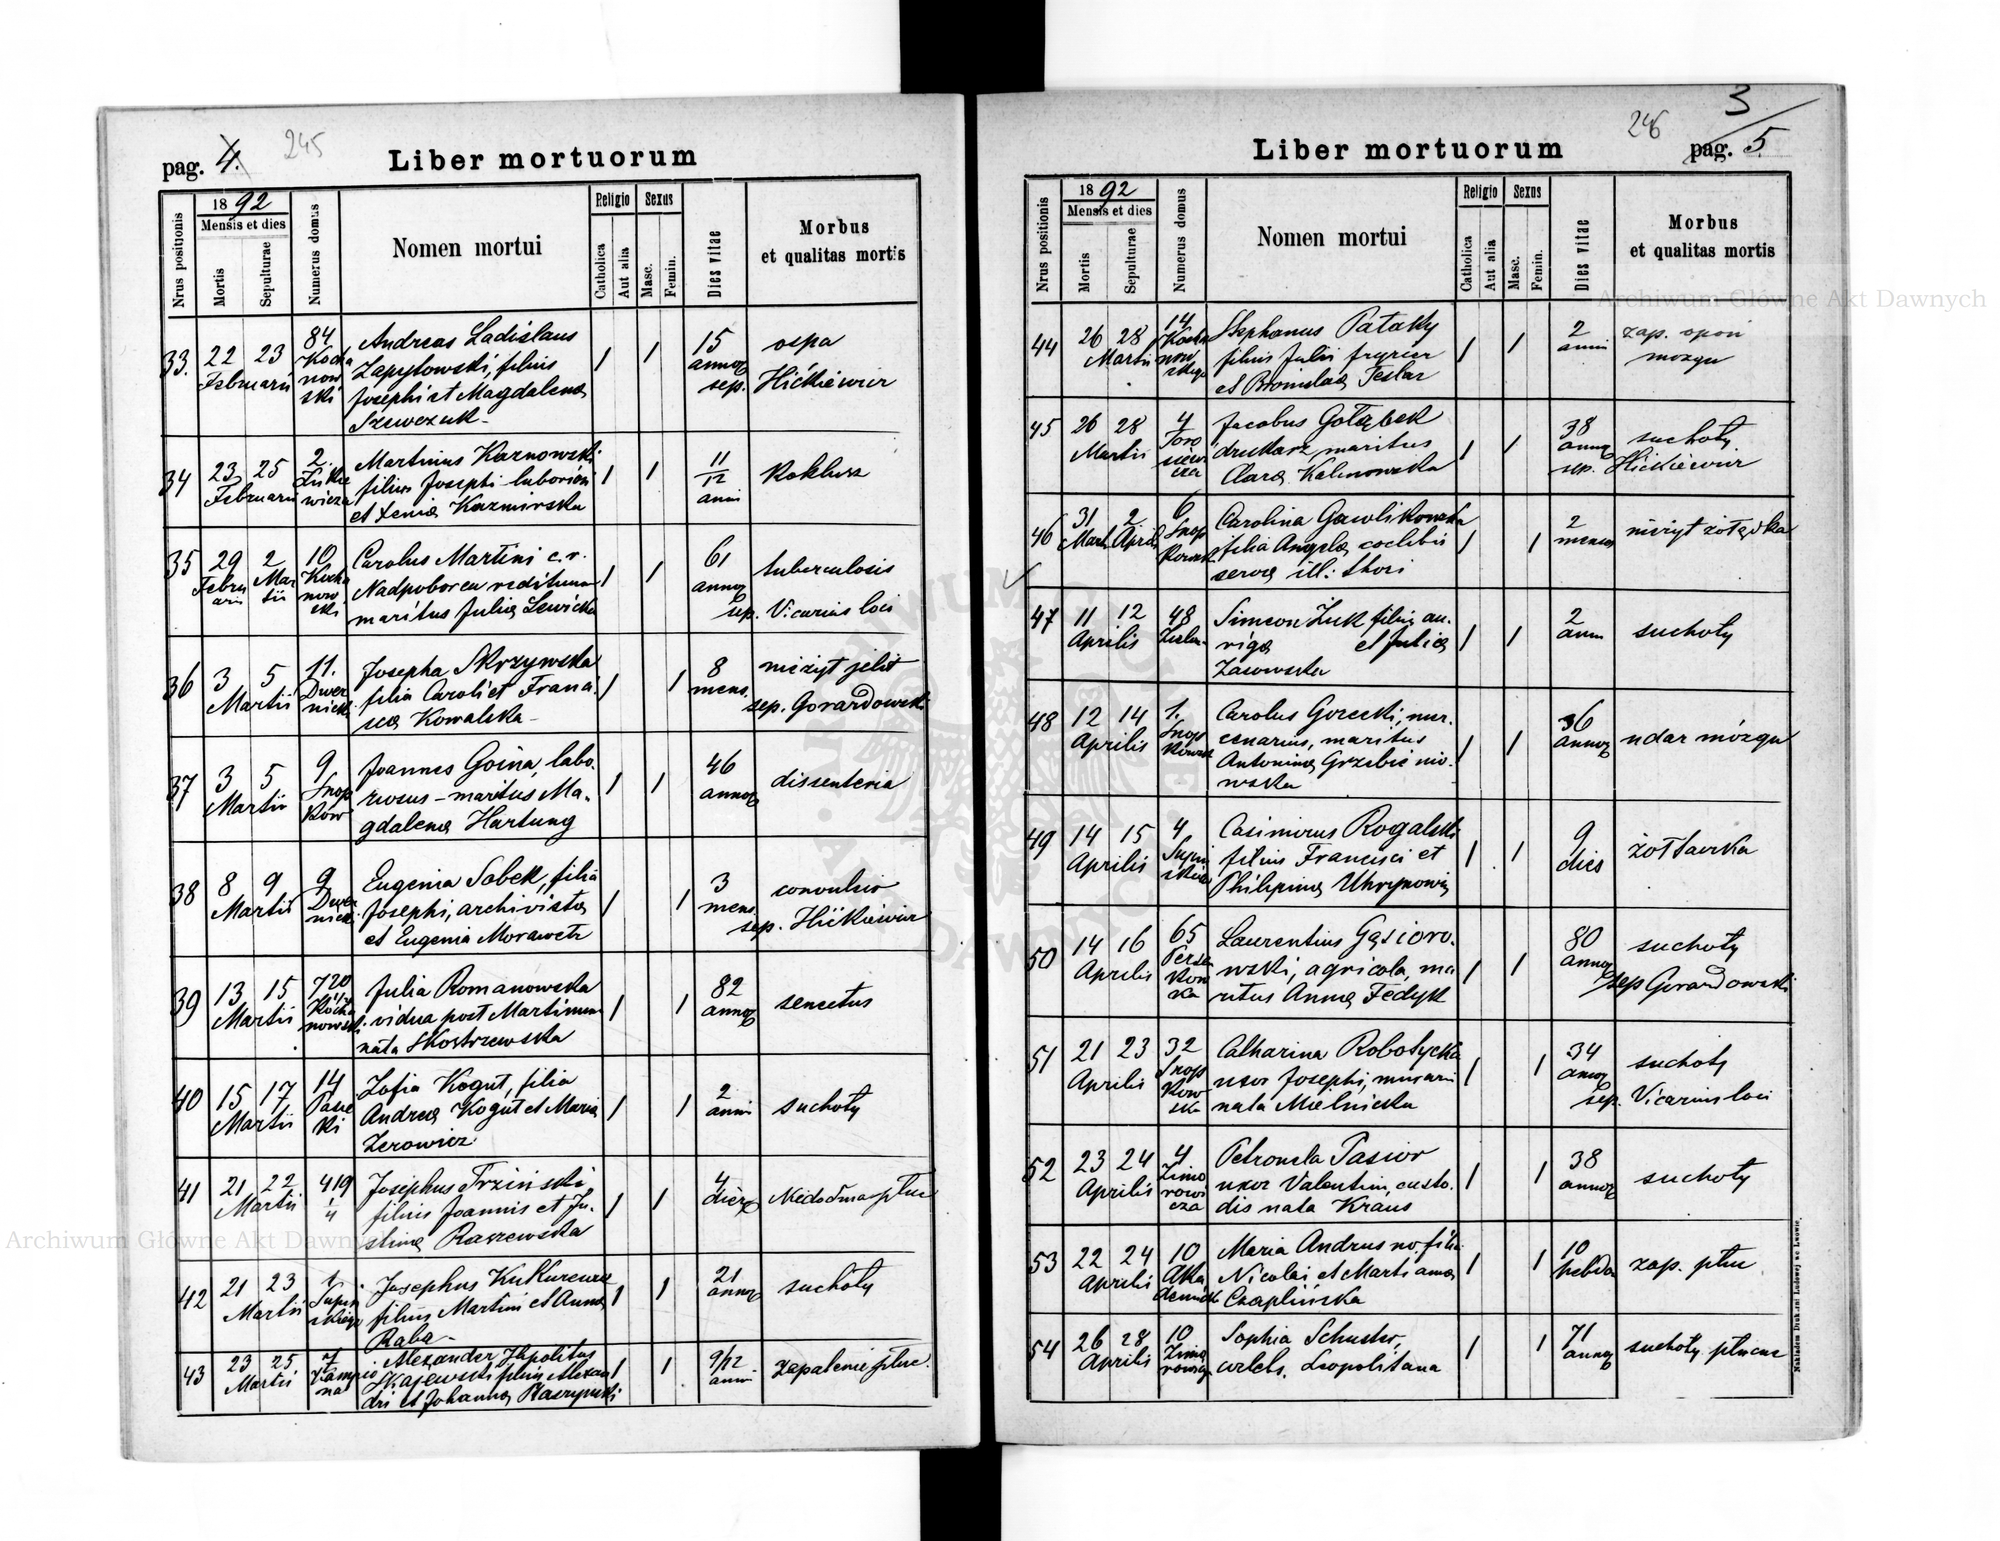 pag. 4. 245
Liber mortuorum
Nrus positionis
18 92
Mensis et dies
Mortis
Sepulturae
Numerus domus
Nomen mortui
Religio
Catholica
Aut alia
Sexus
Masc.
Femin.
Dies vitae
Morbus
et qualitas mortis
33. 22 23 Februarii 84 Kocha
now
ski
Andreas Ladislaus
Zapytowski, filius
Josephi et Magdalena
Szewczuk -
15
annor
sep.
ospa
Hićkiewicz
34 23 25 Februarii 2.
Martinus Karnowski
filius Josephi
et Xenia Kazmirska
11
12
anni
Koklusz
35 29 2
Februarii Martii
10
Kocha
now
ski
Carolus Martini c. r.
Nadpoborca
maritus Julia Lewicka
61
annor
sep.
tuberculosis
Vicarius loci
36 3 5
Martii
11.
Dwer
nicki
Josepha Skrzywska
filia Caroli et Franci
sca Kowalska -
8
mens.
nieżyt jelit
sep. Gorardowski
37 3 5
Martii
9
Snop
kow
Joannes Goina, labo.
riosus - maritus Ma.
gdalena Hartung
46
annor
dissenteria
38 8 9
Martii
9
Dwer
nicki
Eugenia Sobek, filia
Josephi, archivista
et Eugenia Morawetz
3
mens.
convulsio
sep. Hićkiewicz
39 13 15
Martii
720
Kocha
nowski
Julia Romanowska
vidua post Martinum
nata Skostrzewska
82
annor
senectus
40 15 17
Martii
14
Zofia Kogut, filia
Andrea Kogut et Maria
Zerowicz
2
anni
suchoty
41 21 22
Martii
419
4
Josephus Trzinski
filius Joannis et Ju.
stina Raszewska
4
dier
Niedodma płuc
42 21 23
Martii
Supin
skiego
Josephus Kukurewicz
filius Martini et Anna
Raba -
21
annor
suchoty
43 23 25
Martii
7
Alexander Hypolitus
filius Alexan
dri et Johanna
9/12
anni
zapalenie płuc.
246
3
pag. 5.
Liber mortuorum
Nrus positionis
18 92
Mensis et dies
Mortis
Sepulturae
Numerus domus
Nomen mortui
Religio
Catholica
Aut alia
Sexus
Masc.
Femin.
Dies vitae
Morbus
et qualitas mortis
44 26 28
Martii
14
Kocha
now
skiego
Stephanus Pataky
filius Julii fryzier
et Bronislaa Teslar
2
anni
zap. opon
mozgu
45 26 28
Martii
4
Toro
siewi
cza
Jacobus Gołąbek
drukarz, maritus
Clara Kalinowska
38
annor
sep.
suchoty
Hićkiewicz
46 31 2
Martii Aprilis
6
Snop
kowska
Carolina Gawlikowska
filia Angela coelibis
serva ill: thori
2
menses
nieżyt żołądka
47 11 12
Aprilis
48
Simeon Żuk filius au.
riga et Julia
Zasowska
2
anni
suchoty
48 12 14
Aprilis
1.
Snop
kowska
Carolus Gorecki, mer.
cenarius, maritus
Antonina Grzebienio
wska
36
annor
udar mózgu
49 14 15
Aprilis
4
Supin
skiego
Casimirus Rogalski
filius Francisci et
Philipina Uhrynowicz
9
dies
żółtaczka
50 14 16
Aprilis
65
Persen
kow
ka
Laurentius Gąsioro.
wski, agricola, ma
ritus Anna Fedyk
80
annor
suchoty
sep Gorardowski
51 21 23
Aprilis
32
Snop
kow
ska
Catharina Robotycka
uxor Josephi, murarii
nata Mielnicka
34
annor
sep.
suchoty
Vicarius loci
52 23 24
Aprilis
4
Zimo
rowi
cza
Petronela Pasior
uxor Valentini, custo.
dis nata Kraus
38
annor
suchoty
53 22 24
Aprilis
10
Aka
demicka
Maria Andrusno, filia
Nicolai et Martiana
Czaplińska
10
hebdo
zap. płuc
54 26 28
Aprilis
10
Zimo
rowicz
Sophia Schuster,
coelebs, Leopolitana
71
annor
suchoty płucne
Nakładem Drukarni Ludowej we Lwowie.
Archiwum Główne Akt Dawnych
Archiwum Główne Akt Dawnych
ARCHIWUM GŁÓWNE AKT DAWNYCH